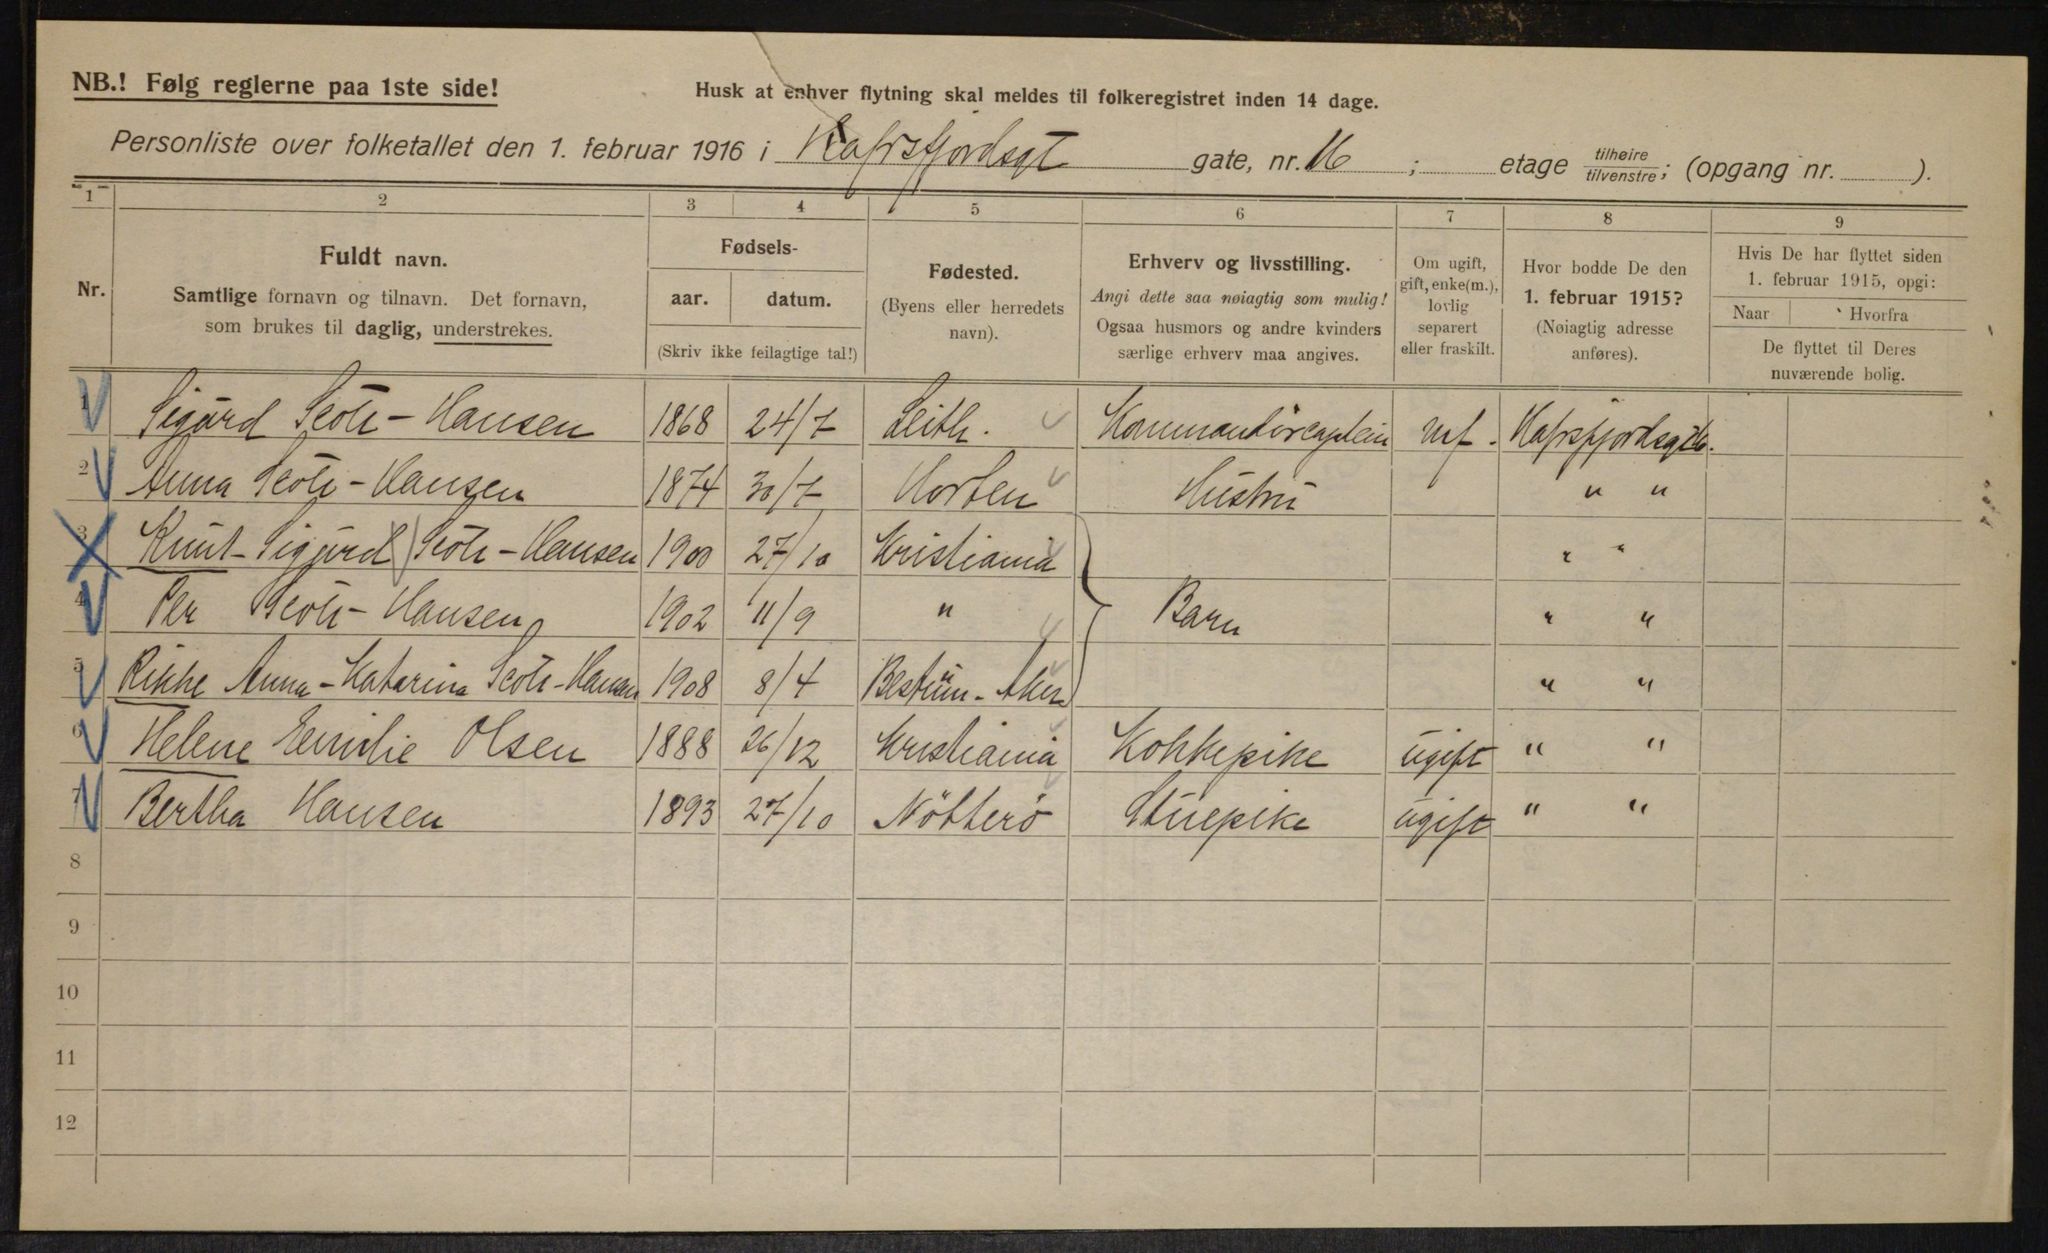 NB.! Følg reglerne paa 1ste side!
Husk at enhver flytning skal meldes til folkeregistret inden 14 dage.
Personliste over folketallet den 1. februar 1916 i Hafrsfjordsgt gate, nr. 16 ; etage tilhøire/tilvenstre; (opgang nr. ).
1 2 3 4 5 6 7 8 9
Nr.
Fuldt navn.
Samtlige fornavn og tilnavn. Det fornavn,
som brukes til daglig, understrekes.
Fødsels-
aar. datum.
(Skriv ikke feilagtige tal!)
Fødested.
(Byens eller herredets
navn).
Erhverv og livsstilling.
Angi dette saa nøiagtig som mulig!
Ogsaa husmors og andre kvinders
særlige erhverv maa angives.
Om ugift,
gift, enke(m.),
lovlig
separert
eller fraskilt.
Hvor bodde De den
1. februar 1915?
(Nøiagtig adresse
anføres).
Hvis De har flyttet siden
1. februar 1915, opgi:
Naar Hvorfra
De flyttet til Deres
nuværende bolig.
1 Sigurd Scott-Hansen 1868 24/7 Leith. Kommandörcaptein Hafrsfjordsgt 16.
2 Anna Scott-Hansen 1874 30/7 Horten Hustru " "
3 Knut Sigurd Scott-Hansen 1900 27/10 Kristiania " "
4 Per Scott-Hansen 1902 11/9 " Barn " "
5 Rikke Anna-Katarina Scott-Hansen 1908 8/4 Bestum-Aker " "
6 Helene Emilie Olsen 1888 26/12 Kristiania Kokkepike ugift " "
7 Bertha Hansen 1893 27/10 Nötterö Stuepike ugift " "
8
9
10
11
12